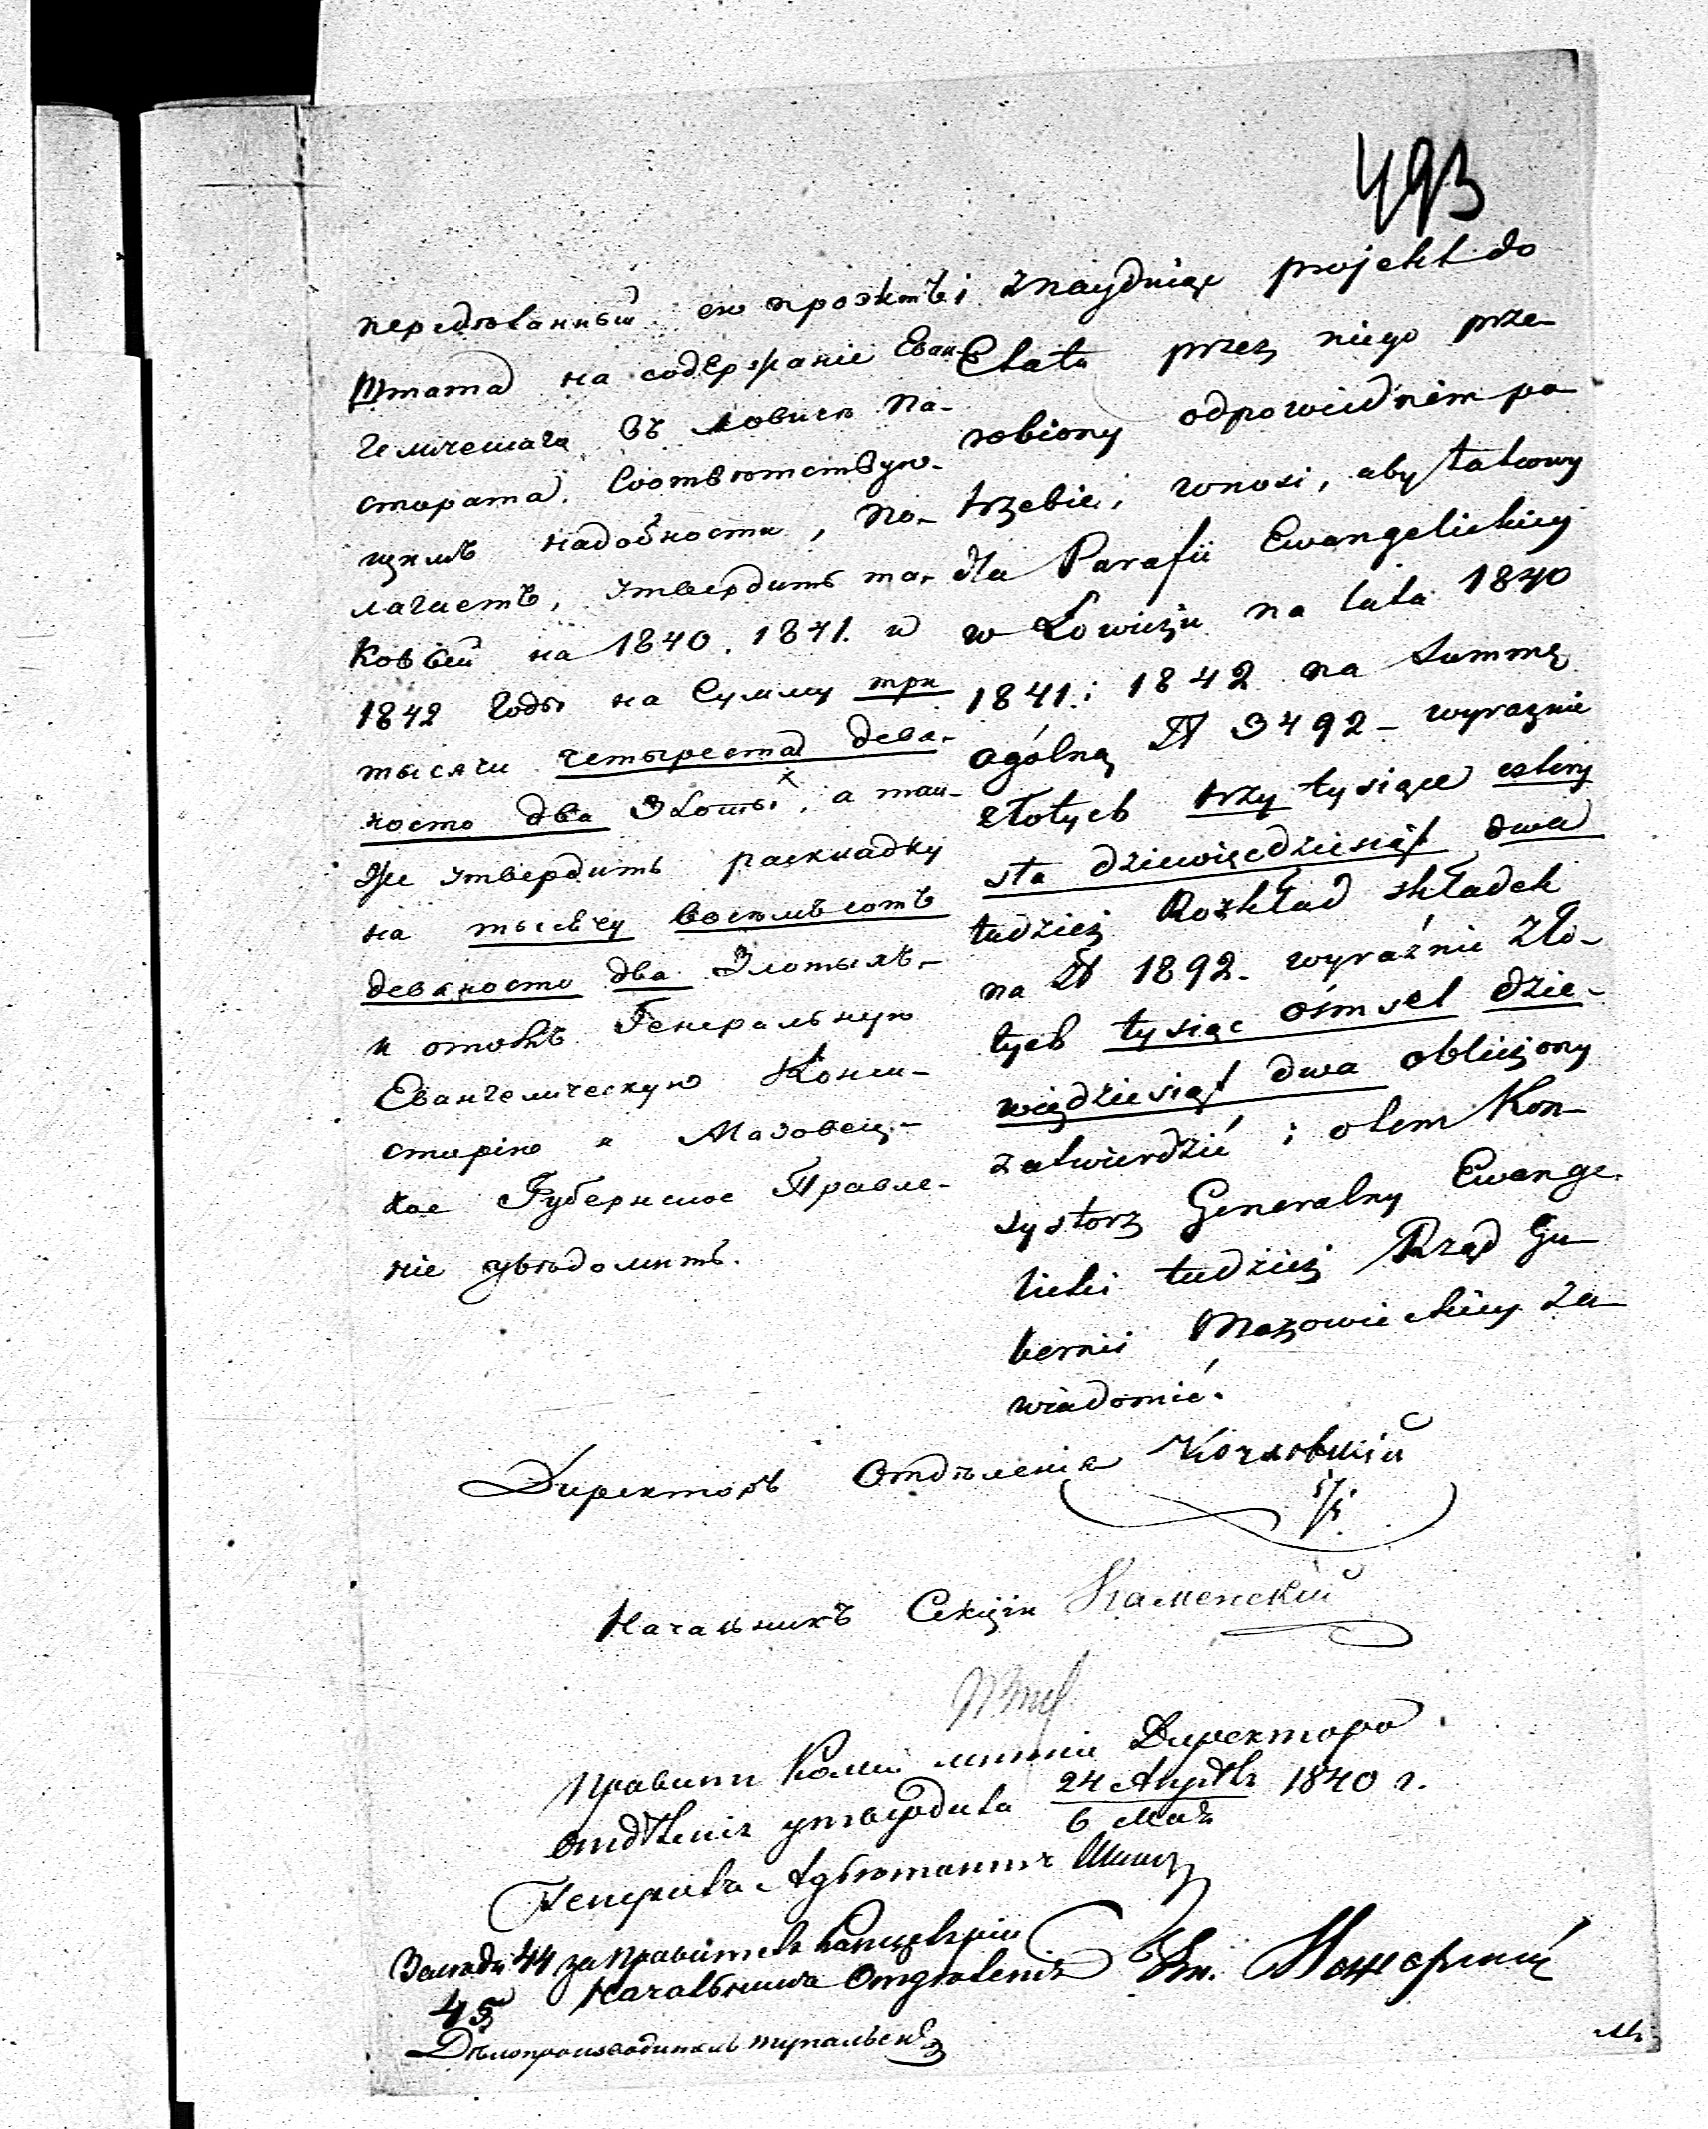 493
передѣланный ею проэктъ
Штата на содержаніе Еван-
гелическаго въ Ловичѣ Па-
стората. Соотвѣтствую-
щимъ надобности, по-
лагаетъ, утвердить та-
ковый на 1840. 1841. и
1842 годы на Сумму три
тысячи четыреста девя-
носто два Злоты, а так-
же утвердить раскладку
на тысячу восемьсотъ
девяносто два Злотыхъ,
и о томъ Генеральную
Евангелическую Конси-
сторію и Мазовец-
кое Губернское Правле-
ніе увѣдомить.
i znayduiąc projekt do
Etatu przez niego prze-
robiony odpowiednim po-
trzebie, wnosi, aby takowy
dla Parafii Ewangelickiey
w Łowiczu na lata 1840
1841. i 1842 na Summę
ogólną Zł 3492 - wyraźnie
złotych trzy tysiące cztery
sta dziewięćdziesiąt dwa
tudzież Rozkład składek
na Zł 1892. wyraźnie Zło-
tych tysiąc ośmset dzie-
więdziesiąt dwa obliczony
zatwierdzić i o tem Kon-
systorz Generalny Ewange-
licki tudzież Rząd Gu-
bernii Mazowieckiey za-
wiadomić.
Директоръ Отдѣленія
Начальникъ Секціи Каменскій
Правит. Комм. мнѣніе Директора
Отдѣленія утвердила 24 Апрѣля / 6 Мая 1840 г.
Генералъ Адъютантъ
44 за Правителя Канцеляріи
Начальника Отдѣленія
45
Дѣлопроизводитель